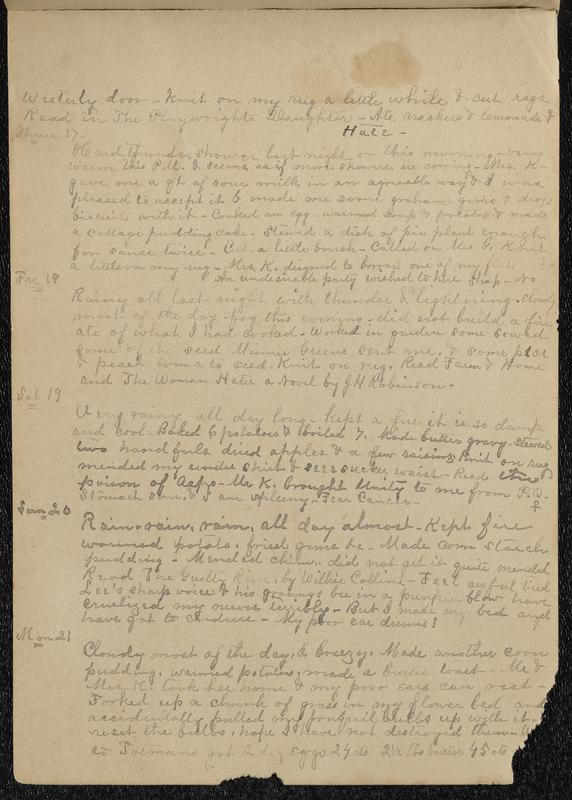 Westerly door - Knit on my rug a little while & cut rags
Read in The Playwright's Daughter - Ate crackers & lemonade &
Thurs 17- Hate -
Hard thunder shower last night or this morning - very
warm this P.M. & seems as if more showers are coming - Mrs. K-
gave me a qt of sour milk in an agreeable way & I was
pleased to accept it & made me some graham gems & drop
biscuits with it - Cooked an egg - warmed soup & potato & made
a cottage pudding cake. Stewed a dish of pie plant enough
for sauce twice - Cut a little brush - Called on Mrs G. Knit
a little on my rug - Mrs K. deigned to borrow one of my
An undesirable party wished to hire shop - No
Fri 18
Rainy all last night with thunder & lightning. Cloudy
most of the day - fog this evening - did not build a fire
ate of what I had cooked - Worked in garden some sowed
some of the seed Minnie Greene sent me, & some
& peach seed - Knit on rug. Read Farm & Home
and The Woman Hater a Novel by J H Robinson -
Sat 19
Very rainy all day long - Kept a fire it is so damp
and cool - Baked 6 potatoes & boiled 7. Made butter gravy - stewed
two handfuls dried apples & a few raisins Knit on rug
mended my under shirt & seersucker waist - Read the
poison of Asps - Mr K. brought Unity to me from P.O.
Stomach sour, & I am spleeny - Fear Cancer -
Sun 20
Rain, rain, rain, all day almost - Kept fire
warmed potato, fried gems &c - Made corn starch
pudding - Mended did not get it quite mended
Read The Guilty River, by Wilkie Collins - Feel awful tired
Lee's sharp voice & his granny's bee in a punkin blow have
crucified my nerves terribly - But I made my bed and
have got to endure - My poor ear drums!
Mon 21
Cloudy most of the day, & breezy. Made another corn
pudding, warmed potatoes, made a butter toast - Mr &
Mrs K. took Lee home & my poor ears can rest -
Forked up a chunk of grass in my flower bed and
accidentally pulled my jonquil bulbs up with it -
reset the bulbs, hope I have not destroyed them -
to Tolmans got 2 dz eggs 24 cts 2½ lbs butter 45 cts